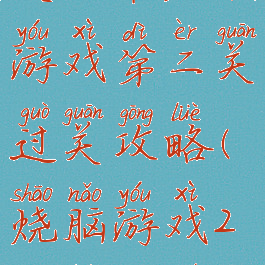 yóu xì dì èr guān
游戏第二关
guò guān gōng lüè
过关攻略(
shāo nǎo yóu xì
烧脑游戏2